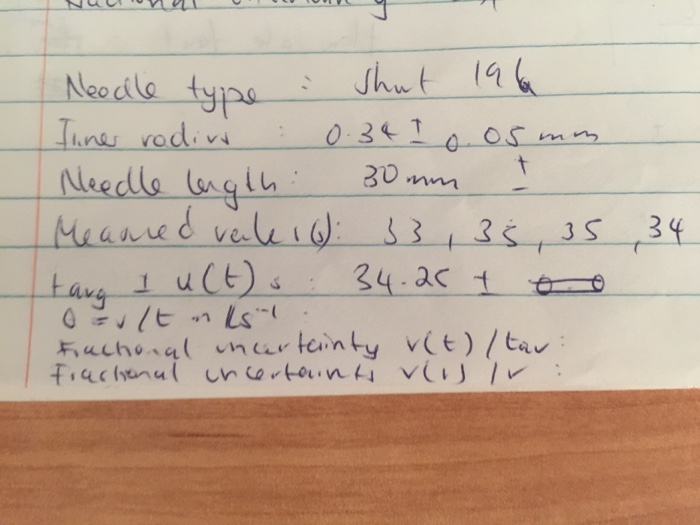 Needle type : Shut 19G
Inner radius : 0.34 ± 0.05 mm
Needle length : 30mm ±
Meaured value (s): 33, 35, 35, 34
tavg ± u(t) s : 34.25 ±
Q = v/t in Ls⁻¹ :
Fractional uncertainty v(t) / tav :
Fractional uncertainty /v :